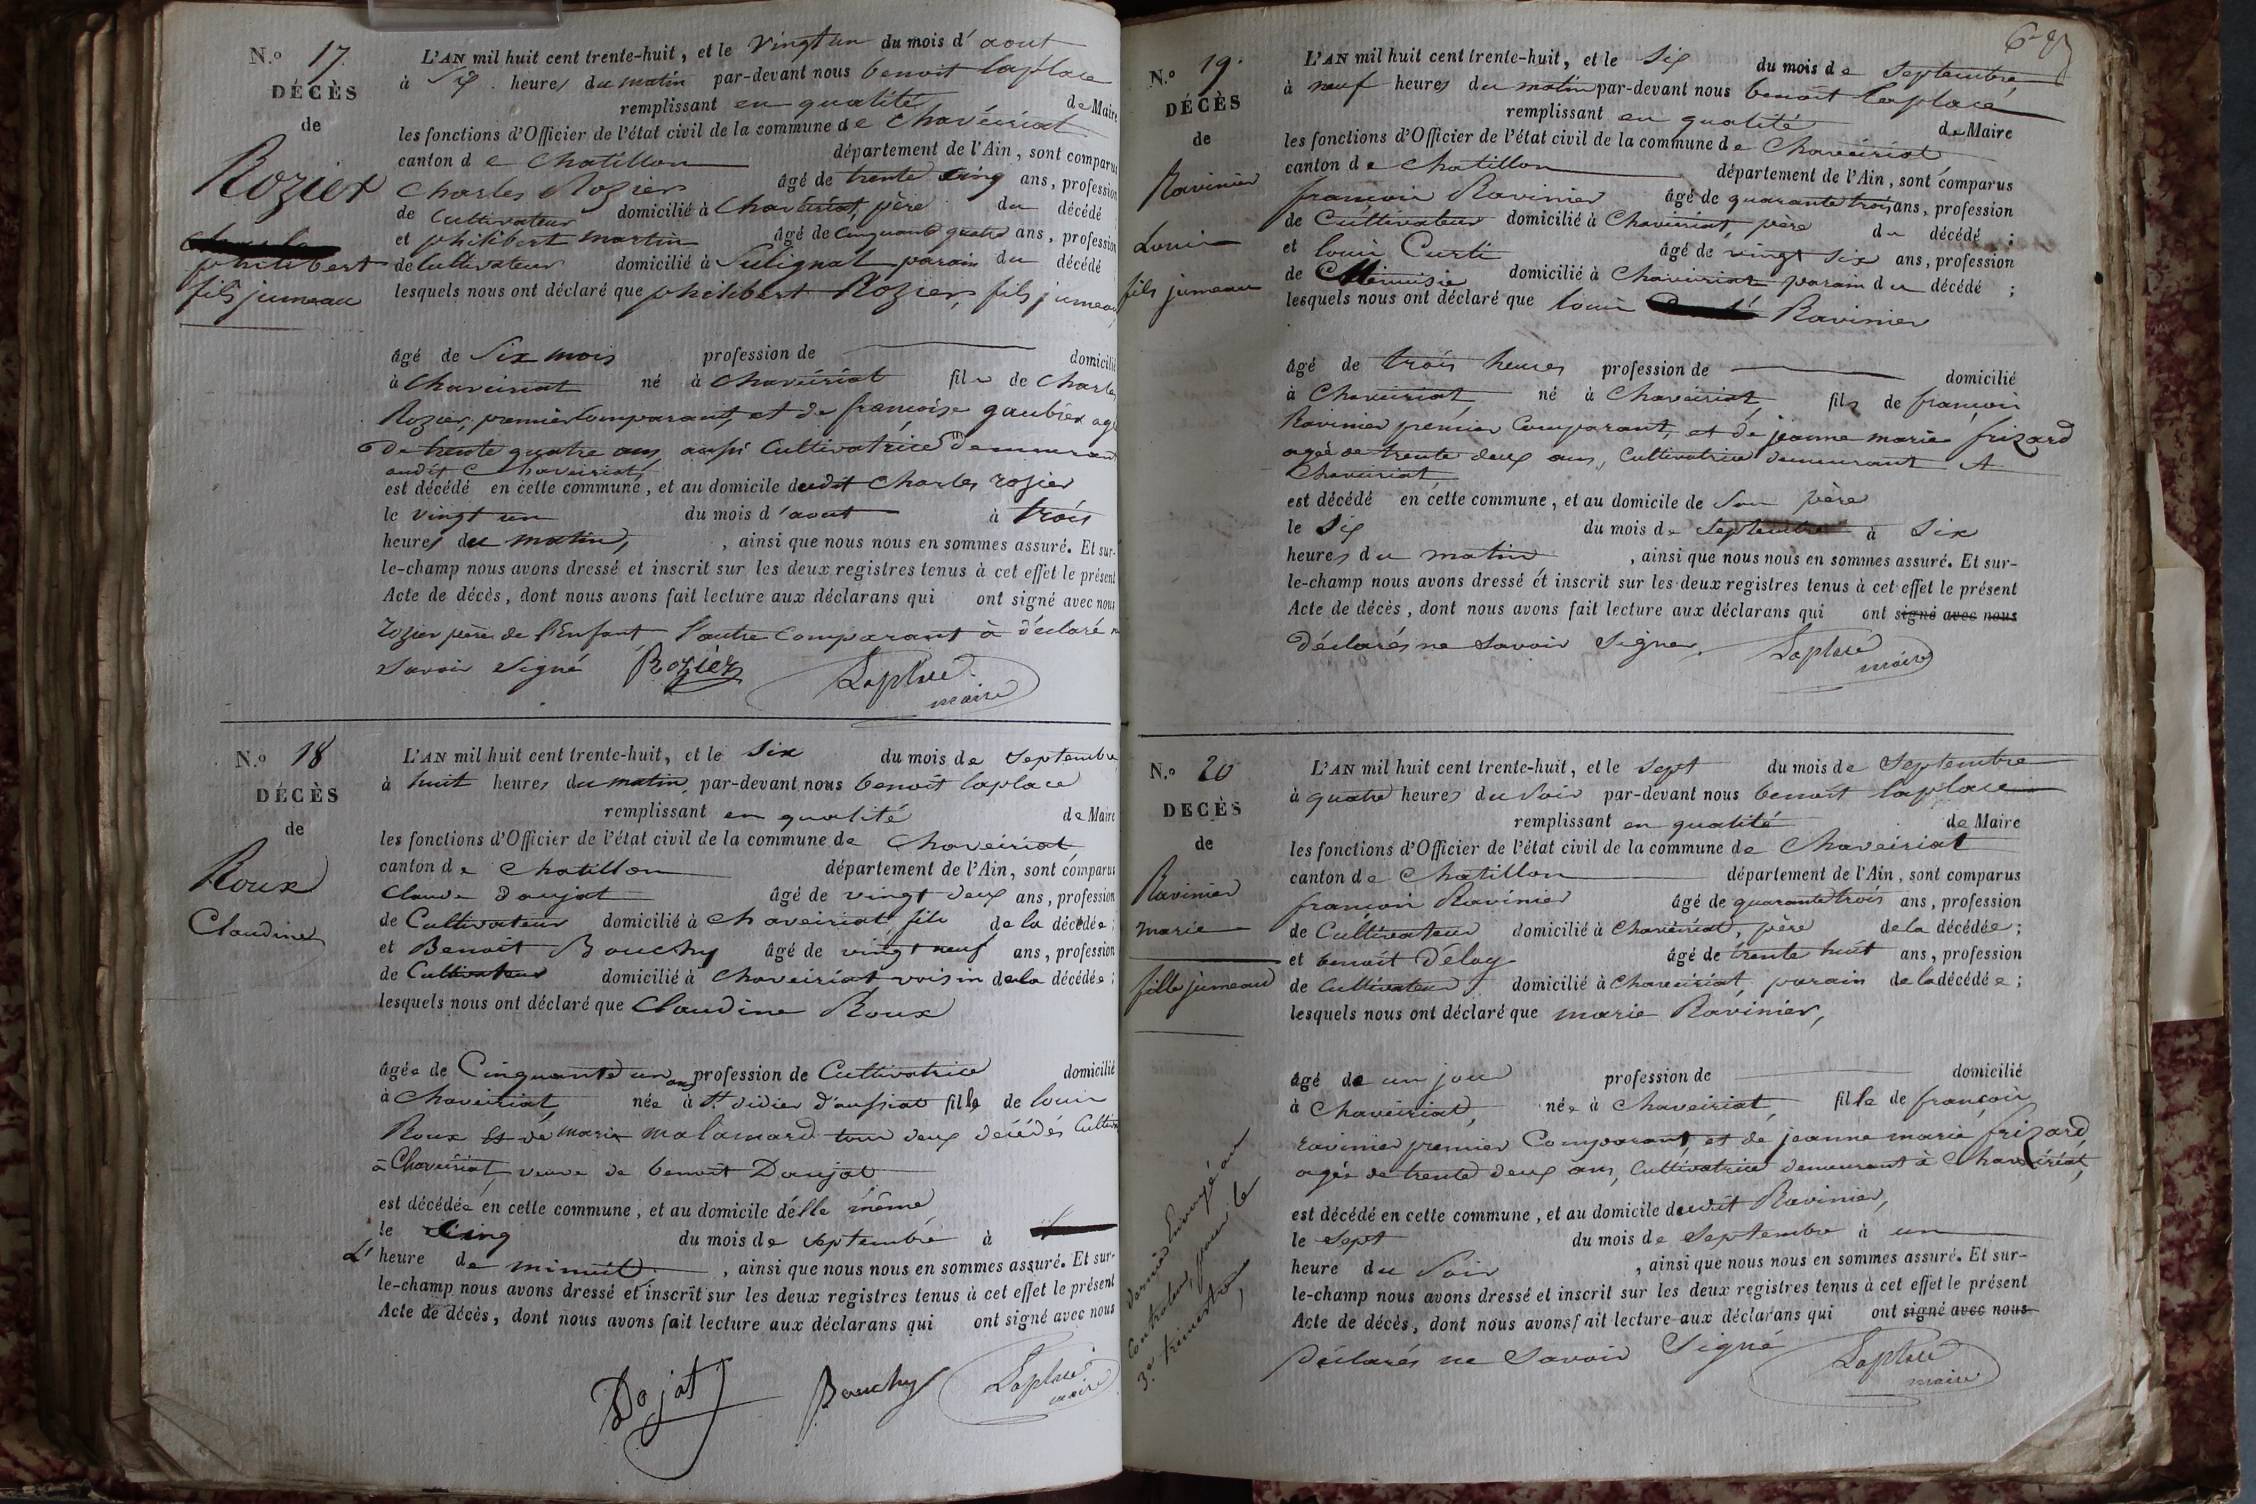 N.º 17.
DÉCÈS
de
Rozier
philibert
fils jumeau
L'AN mil huit cent trente-huit, et le vingt un du mois d'aout
à Six heures du matin par-devant nous benoit laplace
remplissant en qualité de Maire
les fonctions d'Officier de l'état civil de la commune de Chaveiriat
canton de Chatillon département de l'Ain, sont comparus
Charles Rozier âgé de trente cinq ans, profession
de Cultivateur domicilié à Chaveiriat, père du décédé
et philibert martin âgé de cinquante quatre ans, profession
de Cultivateur domicilié à Sulignat parain du décédé
lesquels nous ont déclaré que philibert Rozier, fils jumeau
âgé de Six mois profession de domicilié
à Chaveiriat né à Chaveiriat fils de Charles
Rozier, premier Comparant, et de françoise gaubier agé
de trente quatre ans, aussi Cultivatrice demeurant
audit Chaveiriat,
est décédé en cette commune, et au domicile dudit Charles rozier
le vingt un du mois d'aout à trois
heures du matin, , ainsi que nous nous en sommes assuré. Et sur-
le-champ nous avons dressé et inscrit sur les deux registres tenus à cet effet le présent
Acte de décès, dont nous avons fait lecture aux déclarans qui ont signé avec nous
rozier père de l'Enfant l'autre Comparant à déclaré n
savoir signé Rozier Laplace
maire
N.º 18
DÉCÈS
de
Roux
Claudine
L'AN mil huit cent trente-huit, et le six du mois de septembre
à huit heures du matin, par-devant nous benoit laplace
remplissant en qualité de Maire
les fonctions d'Officier de l'état civil de la commune de Chaveiriat
canton de Chatillon département de l'Ain, sont comparus
Claude Daujat âgé de vingt deux ans, profession
de Cultivateur domicilié à Chaveiriat, fils de la décédée;
et Benoit Bouchy âgé de vingt neuf ans, profession
de Cultivateur domicilié à Chaveiriat voisin de la décédée;
lesquels nous ont déclaré que Claudine Roux
âgée de Cinquante un ans profession de Cultivatrice domicilié
à Chaveiriat, née à St. didier d'aussiat fille de louis
Roux et de marie malamard tous deux décédés Cultiv
à Chaveiriat, veuve de benoit Daujat
est décédée en cette commune, et au domicile d'elle même
le Cinq du mois de septembre à
L'heure de minuit , ainsi que nous nous en sommes assuré. Et sur-
le-champ nous avons dressé et inscrit sur les deux registres tenus à cet effet le présent
Acte de décès, dont nous avons fait lecture aux déclarans qui ont signé avec nous
Dojat Bouchy Laplace
maire
6
N.º 19.
DÉCÈS
de
Ravinier
Louis
fils jumeau
L'AN mil huit cent trente-huit, et le Six du mois de Septembre,
à neuf heures du matin par-devant nous benoit laplace
remplissant en qualité de Maire
les fonctions d'Officier de l'état civil de la commune de Chaveiriat
canton de Chatillon département de l'Ain, sont comparus
françois Ravinier âgé de quarante trois ans, profession
de Cultivateur domicilié à Chaveiriat, père du décédé;
et louis Curti âgé de vingt six ans, profession
de domicilié à Chaveiriat parain du décédé;
lesquels nous ont déclaré que louis Ravinier
âgé de trois heures profession de domicilié
à Chaveiriat né à Chaveiriat, fils de françois
Ravinier premier Comparant, et de jeanne marie frizard
agée de trente deux ans, Cultivatrice demeurant A
Chaveiriat
est décédé en cette commune, et au domicile de son père
le Six du mois de septembre à six
heures du matin , ainsi que nous nous en sommes assuré. Et sur-
le-champ nous avons dressé et inscrit sur les deux registres tenus à cet effet le présent
Acte de décès, dont nous avons fait lecture aux déclarans qui ont signé avec nous
déclarés ne savoir signer. Laplace
maire
N.º 20
DÉCÈS
de
Ravinier
marie
fille jumeau
L'AN mil huit cent trente-huit, et le sept du mois de Septembre
à quatre heures du soir par-devant nous benoit laplace
remplissant en qualité de Maire
les fonctions d'Officier de l'état civil de la commune de Chaveiriat
canton de Chatillon département de l'Ain, sont comparus
françois Ravinier âgé de quarante trois ans, profession
de Cultivateur domicilié à Chaveiriat, père de la décédée;
et benoit Déloy âgé de trente huit ans, profession
de Cultivateur domicilié à Chaveiriat, parain de la décédée;
lesquels nous ont déclaré que marie Ravinier,
âgé de un jour profession de domicilié
à Chaveiriat, née à Chaveiriat, fille de françois
ravinier premier Comparant, et de jeanne marie frizard,
agée de trente deux ans, Cultivatrice demeurant à Chaveiriat,
est décédé en cette commune, et au domicile dudit Ravinier,
le sept du mois de septembre à un
heure du Soir , ainsi que nous nous en sommes assuré. Et sur-
le-champ nous avons dressé et inscrit sur les deux registres tenus à cet effet le présent
Acte de décès, dont nous avons fait lecture aux déclarans qui ont signé avec nous
Déclarés ne Savoir Signé Laplace
maire
dernier Envoyé au
Controleur, pour le
3.e trimestre,